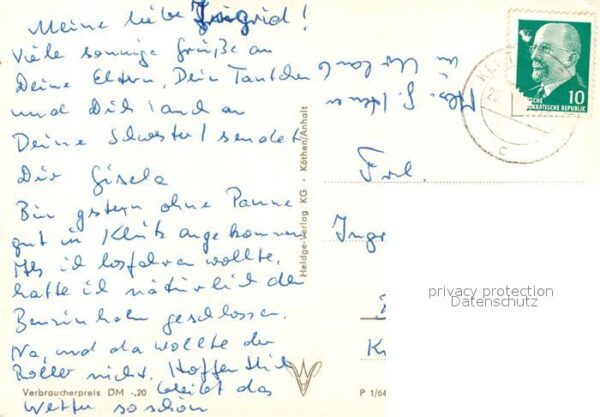 Meine liebe Ingrid!
Viele sonnige Grüße an
Deine Eltern, Dein Tantchen
und Dich (auch an
Deine Schwester) sendet
Dir Gisela
Bin gestern ohne Panne
gut in Klütz angekommen
Als ich losfahren wollte,
hatte ich natürlich den
Benzinhahn geschlossen.
Na, und da wollte der
Roller nicht. Hoffentlich
bleibt das
Wetter so schön
Verbraucherpreis DM -,20
Heldge-Verlag KG - Köthen/Anhalt
P 1/64
Abs. G.
z. Zt. Urlaub
Frl.
Ingr
K
10
DEMOKRATISCHE REPUBLIK
privacy protection
Datenschutz